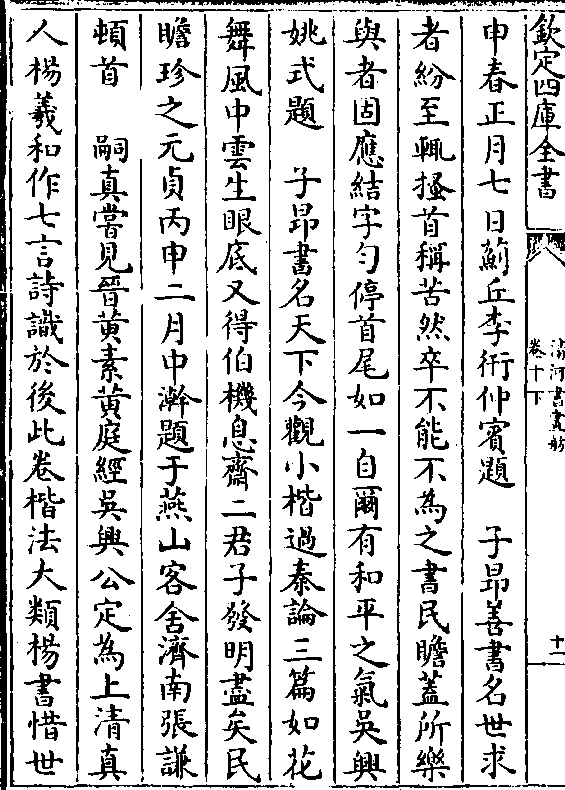 欽定四庫全書
清河書畫舫
卷十下
十二
申春正月七日薊丘李衎仲賓題　子昂善書名世求
者紛至輒搔首稱苦然卒不能不為之書民瞻蓋所樂
與者固應結字勻停首尾如一自爾有和平之氣吳興
姚式題　子昂書名天下今觀小楷過秦論三篇如花
舞風中雲生眼底又得伯機息齋二君子發明盡矣民
瞻珍之元貞丙申二月中澣題于燕山客舍濟南張謙
頓首　嗣真嘗見晉黄素黄庭經吳興公定為上清真
人楊羲和作七言詩識於後此卷楷法大類楊書惜世